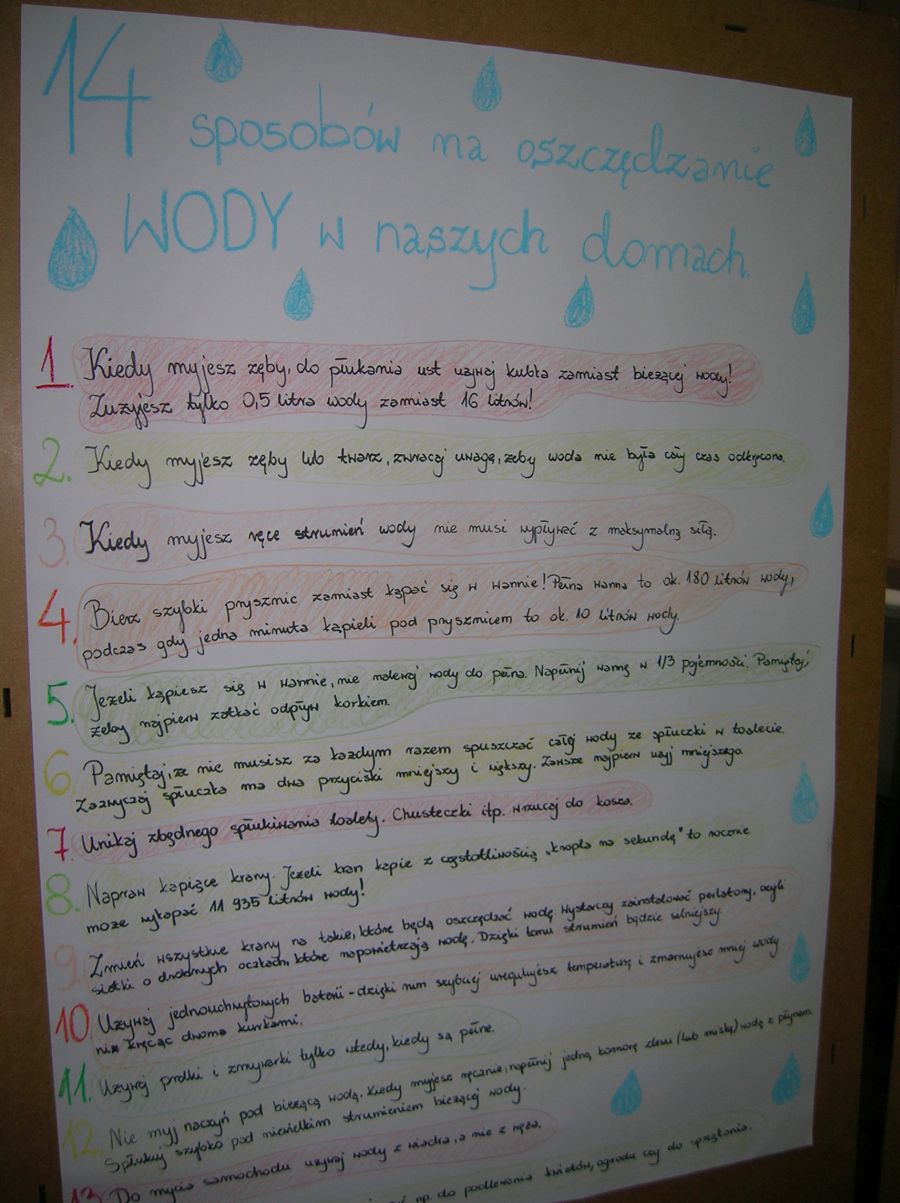 14
sposobów na oszczędzanie
WODY w naszych domach.
1. Kiedy myjesz zęby, do płukania ust używaj kubka zamiast bieżącej wody!
Zużyjesz tylko 0,5 litra wody zamiast 16 litrów!
2. Kiedy myjesz zęby lub twarz, zwracaj uwagę, żeby woda nie była cały czas odkręcona.
3. Kiedy myjesz ręce strumień wody nie musi wypływać z maksymalną siłą.
4. Bierz szybki prysznic zamiast kąpać się w wannie! Pełna wanna to ok. 180 litrów wody,
podczas gdy jedna minuta kąpieli pod prysznicem to ok. 10 litrów wody.
5. Jeżeli kąpiesz się w wannie, nie nalewaj wody do pełna. Napełnij wannę w 1/3 pojemności. Pamiętaj,
żeby najpierw zatkać odpływ korkiem.
6. Pamiętaj, że nie musisz za każdym razem spuszczać całej wody ze spłuczki w toalecie.
Zazwyczaj spłuczka ma dwa przyciski mniejszy i większy. Zawsze najpierw użyj mniejszego.
7. Unikaj zbędnego spłukiwania toalety. Chusteczki itp. wrzucaj do kosza.
8. Napraw kapiące krany. Jeżeli kran kapie z częstotliwością „kropla na sekundę" to rocznie
może wykapać 11 935 litrów wody!
9. Zmień wszystkie krany na takie, które będą oszczędzać wodę. Wystarczy zainstalować perlatory, czyli
siatki o drobnych oczkach, które napowietrzają wodę. Dzięki temu strumień będzie silniejszy.
10. Używaj jednouchwytowych baterii - dzięki nim szybciej uregulujesz temperaturę i zmarnujesz mniej wody
niż kręcąc dwoma kurkami.
11. Używaj pralki i zmywarki tylko wtedy, kiedy są pełne.
12. Nie myj naczyń pod bieżącą wodą. Kiedy myjesz ręcznie, napełnij jedną komorę zlewu (lub miskę) wodą z płynem.
Spłukuj szybko pod niewielkim strumieniem bieżącej wody.
13. Do mycia samochodu używaj wody z wiadra, a nie z węża.
np. do podlewania kwiatów, ogrodu czy do sprzątania.